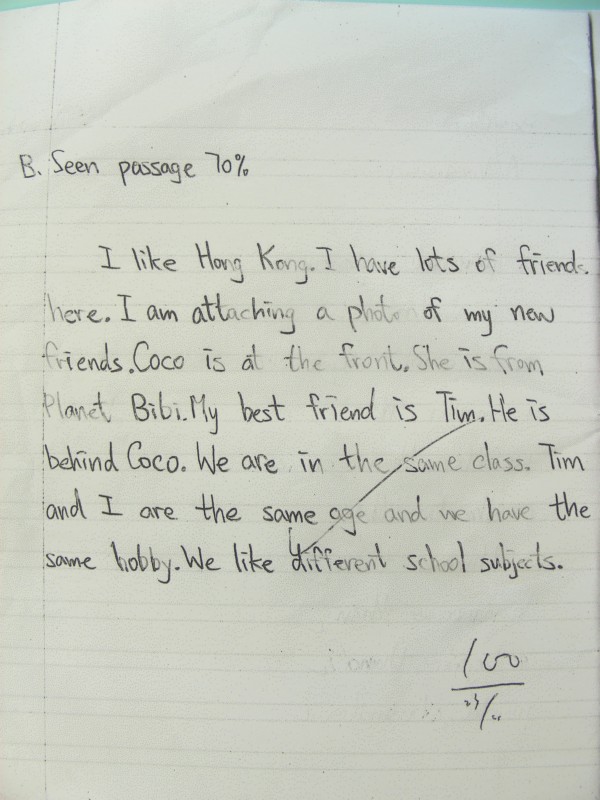 B. Seen passage 70%
I like Hong Kong. I have lots of friends
here. I am attaching a photo of my new
friends. Coco is at the front. She is from
Planet Bibi. My best friend is Tim. He is
behind Coco. We are in the same class. Tim
and I are the same age and we have the
same hobby. We like different school subjects.
100